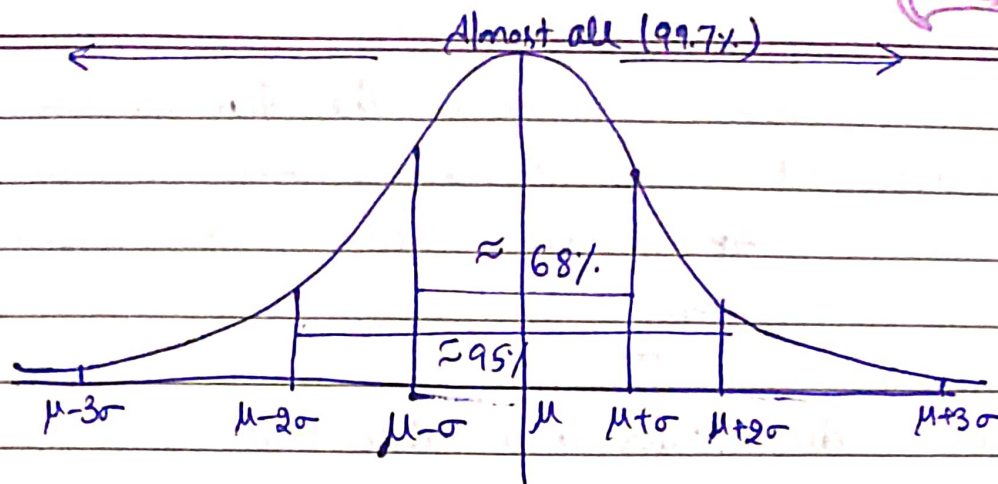 Almost all (99.7%)
≈ 68%
≈95%
μ-3σ μ-2σ μ-σ μ μ+σ μ+2σ μ+3σ